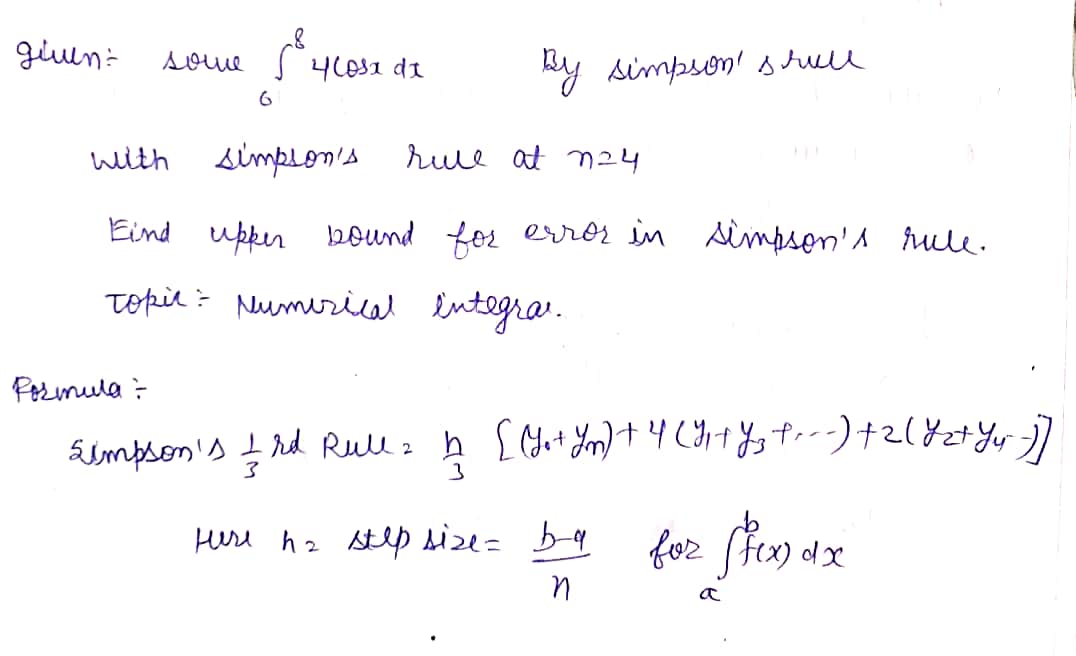 given:- solve ∫₆⁸ 4cosx dx By simpson's rule
with simpson's rule at n=4
Find upper bound for error in simpson's rule.
Topic:- Numerical integra.
Formula:-
Simpson's 1/3 rd Rule = h/3 [(y₀+yₙ)+4(y₁+y₃+---)+2(y₂+y₄--)]
Here h= step size= b-a/n for ∫ₐᵇ f(x) dx